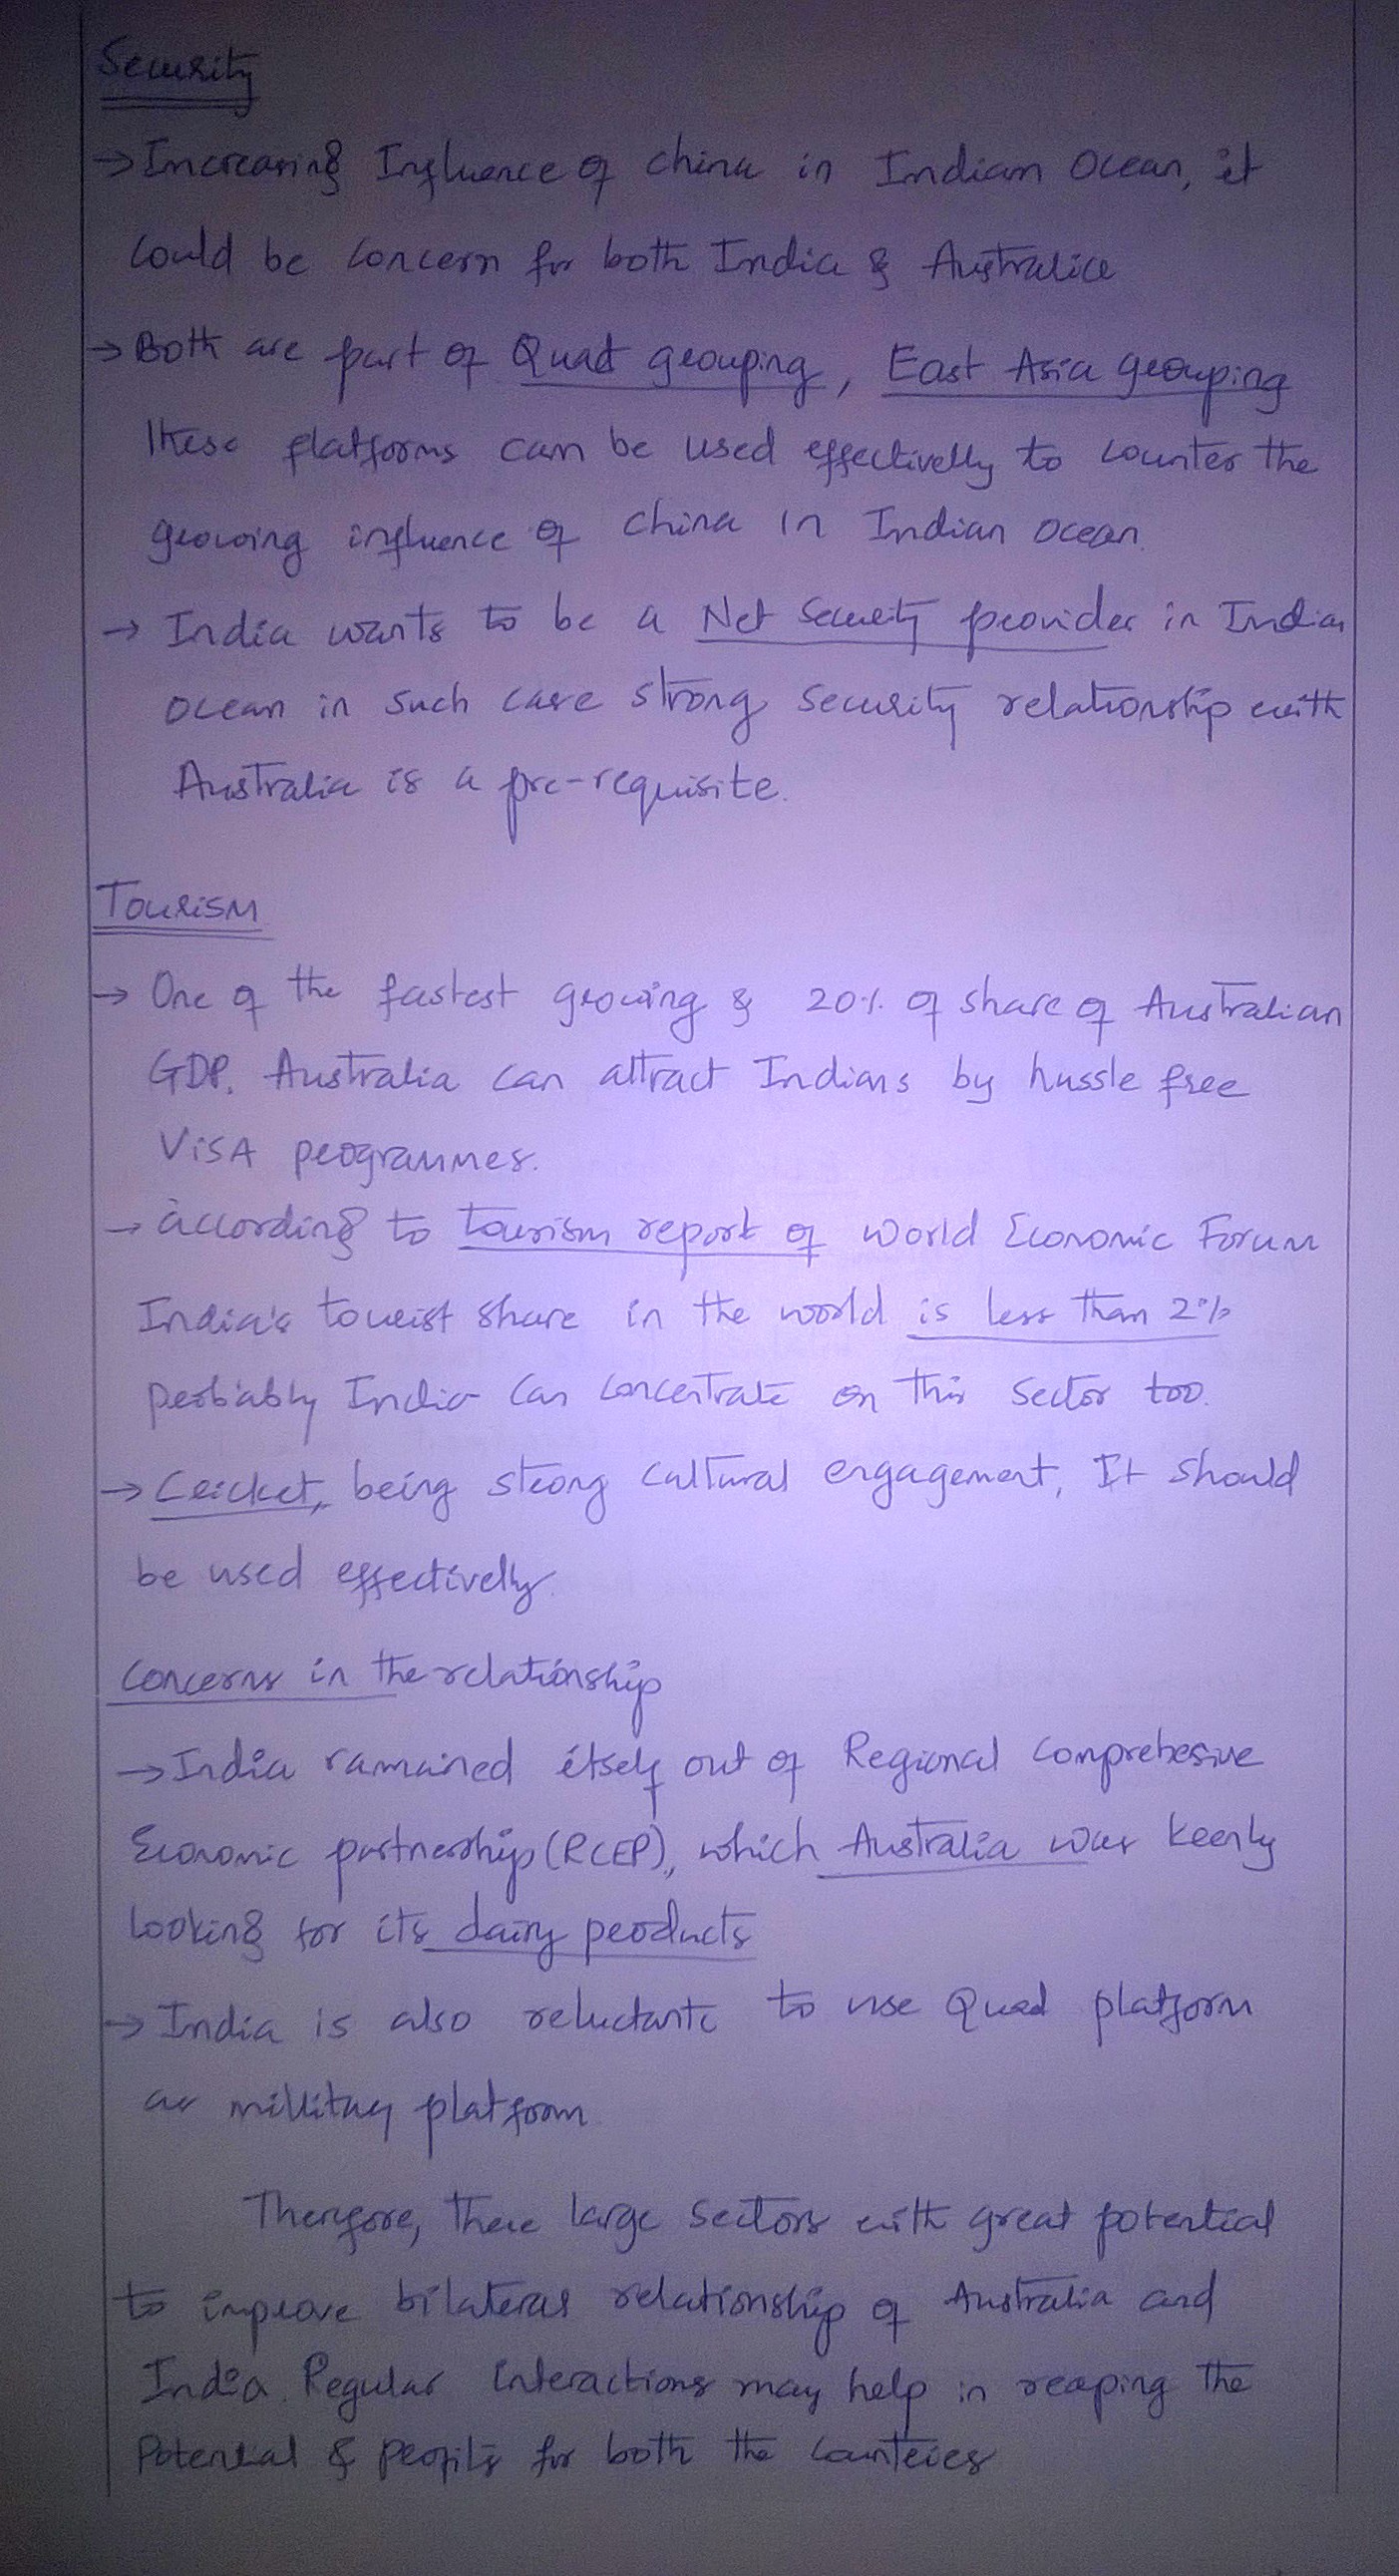 Security
→ Increasing Influence of china in Indian Ocean, it
could be concern for both India & Australia
→ Both are part of Quad grouping, East Asia grouping
These platforms can be used effectivelly to counter the
growing influence of china in Indian ocean.
→ India wants to be a Net Security provider in Indian
ocean in such case strong security relationship with
Australia is a pre-requisite.
Tourism
→ One of the fastest growing & 20% of share of Australian
GDP. Australia can attract Indians by hussle free
VISA programmes.
→ according to tourism report of World Economic Forum
India's tourist share in the world is less than 2%
probably India can concentrate on this sector too.
→ Cricket, being strong cultural engagement, It should
be used effectivelly.
Concerns in the relationship
→ India ramained itself out of Regional Comprehesive
Economic partnership (RCEP), which Australia was keenly
looking for its dairy products
→ India is also reluctant to use Quad platform
as millitay platform
Therefore, these large sectors with great potential
to improve bilateral relationship of Australia and
India. Regular interactions may help in reaping the
Potential & profits for both the countries